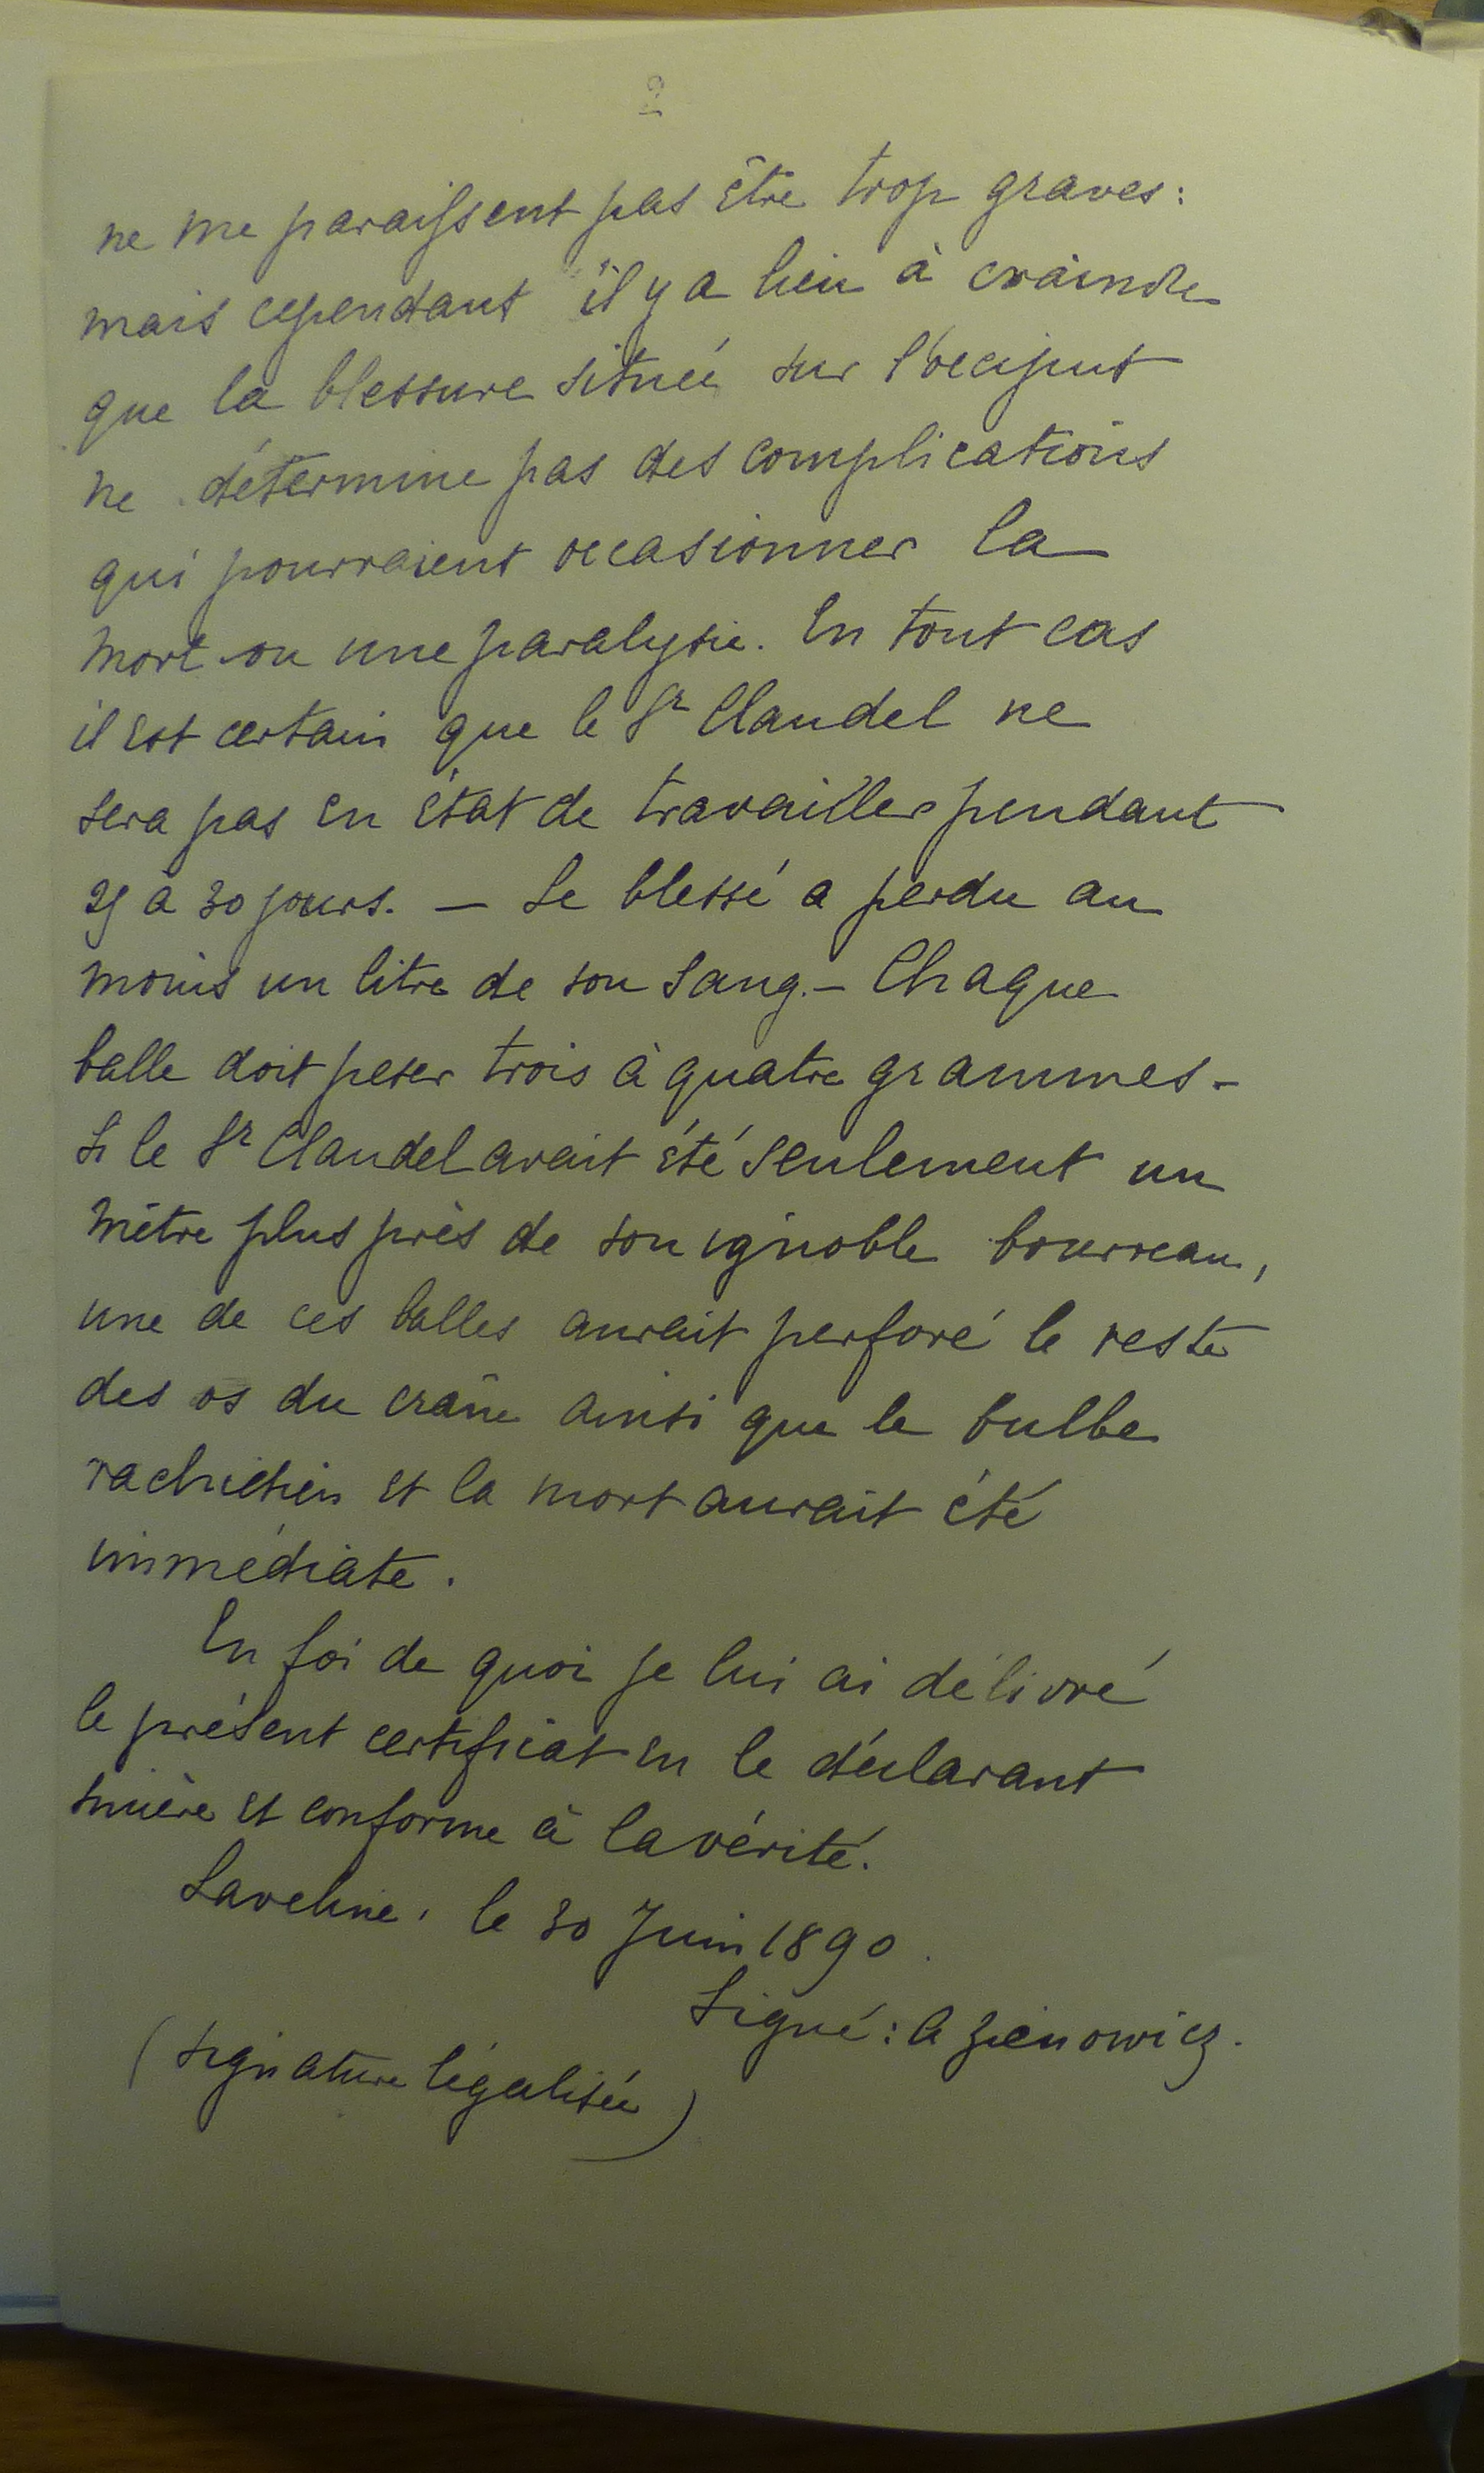 2
ne me paraissent pas être trop graves:
mais cependant il y a lieu à craindre
que la blessure située sur l'occiput
ne détermine pas des complications
qui pourraient occasionner la
mort ou une paralysie. En tout cas
il est certain que le Sr Claudel ne
sera pas en état de travailler pendant
25 à 30 jours. — Le blessé a perdu au
moins un litre de son sang. — Chaque
balle doit peser trois à quatre grammes -
Si le Sr Claudel avait été seulement un
mètre plus près de son ignoble bourreau,
une de ces balles aurait perforé le reste
des os du crâne ainsi que le bulbe
rachidien et la mort aurait été
immédiate.
En foi de quoi je lui ai délivré
le présent certificat en le déclarant
sincère et conforme à la vérité.
Laveline, le 30 Juin 1890.
Signé: A Zienowicz.
(signature légalisée)